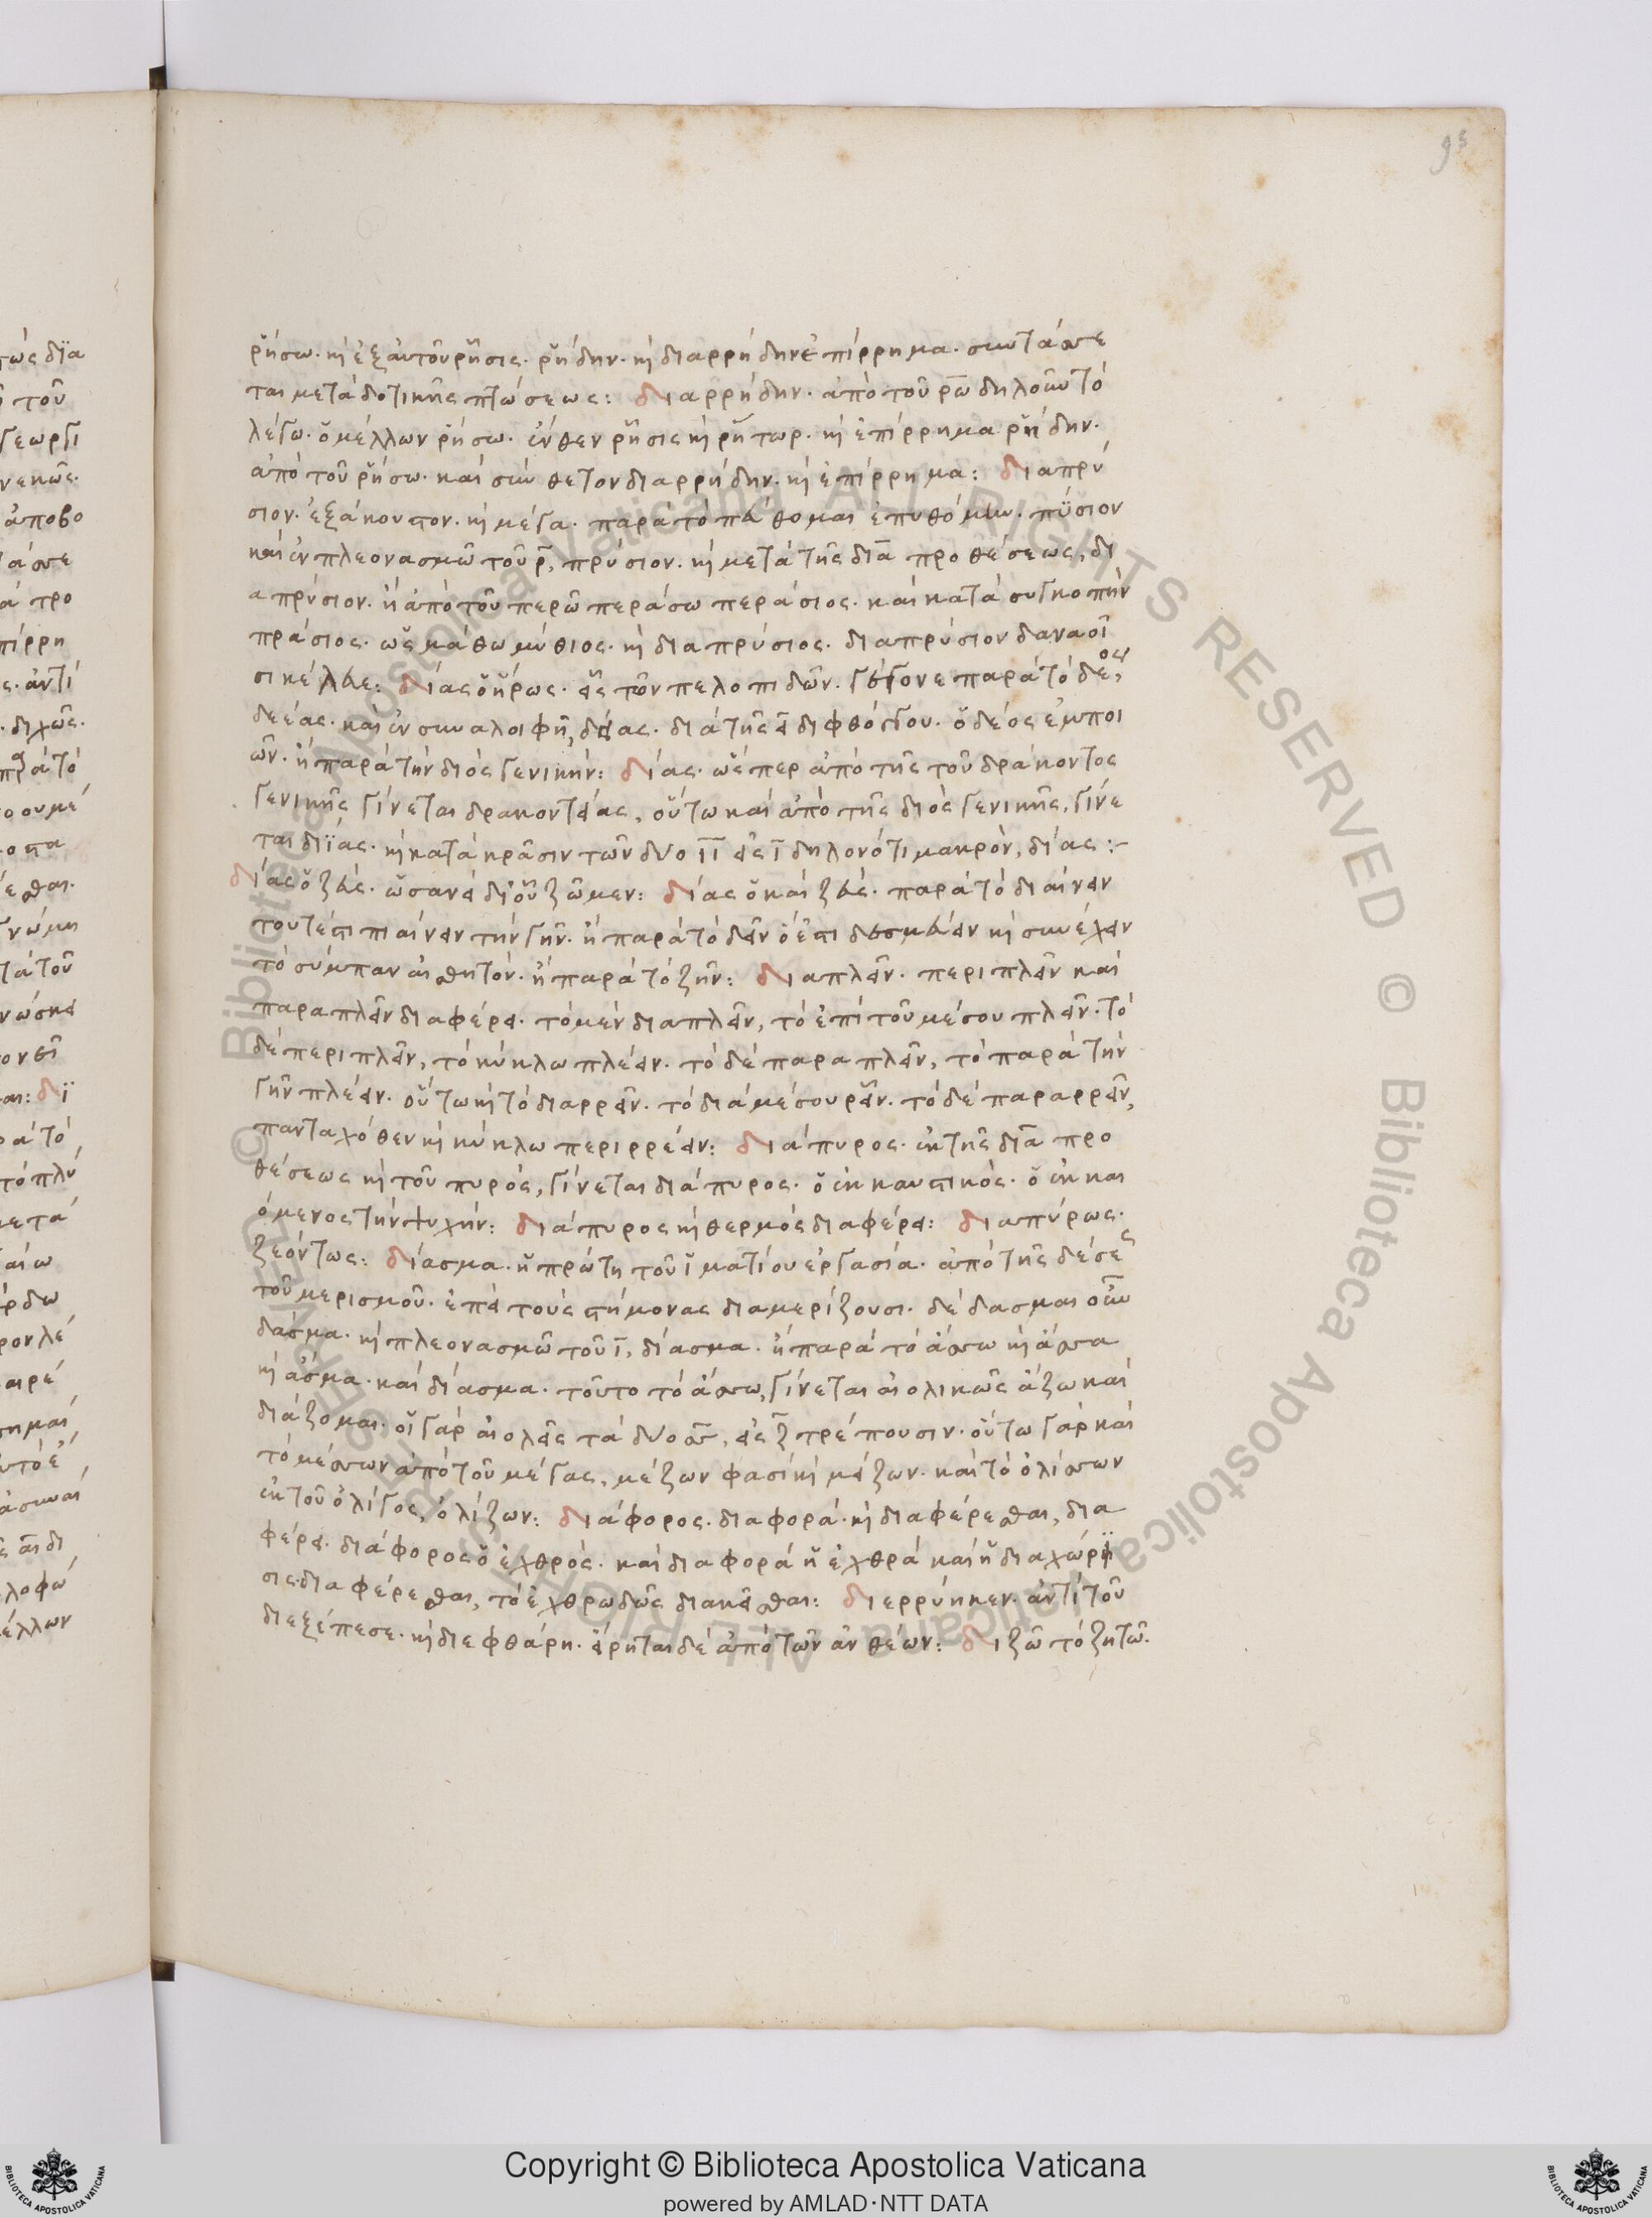 95
ῥήσω· κὶ ἐξ αὐτοῦ ῥῆσις· ῥήδην· κὶ διαρρήδην ἐπίρρημα· συντάσσε
ται μετὰ δοτικῆς πτώσεως: Διαρρήδην· ἀπὸ τοῦ ρῶ δηλοῦν τὸ
λέγω· ὁ μέλλων ῥήσω· ἔνθεν ῥῆσις κὶ ῥήτωρ· κὶ ἐπίρρημα ῥήδην·
ἀπὸ τοῦ ῥήσω· καὶ σύνθετον διαρρήδην· κὶ ἐπίρρημα: Διαπρύ
σιον· ἐξάκουστον· κὶ μέγα· παρὰ τὸ πεύθομαι ἐπυθόμην· πύσιον
καὶ ἐν πλεονασμῶ τοῦ ρ, πρύσιον· κὶ μετὰ τῆς διὰ προθέσεως, δι
απρύσιον· ἢ ἀπὸ τοῦ περῶ περάσω περάσιος· καὶ κατὰ συγκοπὴν
πράσιος· ὡς μάθω μύθιος· κὶ διαπρύσιος· διαπρύσιον δαναοῖ
σι κέλευε: Δίας ὁ ἥρως· εἷς τῶν πελοπιδῶν· γέγονε παρὰ τὸ δέος,
δεέας· καὶ ἐν συναλοιφῆ, δείας· διὰ τῆς ει διφθόγγου· ὁ δέος ἐμποι
ῶν· ἢ παρὰ τὴν διὸς γενικήν: Δίας· ὥσπερ ἀπὸ τῆς τοῦ δράκοντος
γενικῆς γίνεται δρακοντείας, οὕτω καὶ ἀπὸ τῆς διὸς γενικῆς, γίνε
ται διΐας· κὶ κατὰ κρᾶσιν τῶν δύο ιι εἰς ι δηλονότι μακρὸν, δίας :-
Δίας ὁ ζεύς· ὡσανεὶ δι' οὗ ζῶμεν: Δίας ὁ καὶ ζεύς· παρὰ τὸ διαίνειν
τουτέστι πιαίνειν τὴν γῆν· ἢ παρὰ τὸ δεῖν ὅ ἐστι δεσμεύειν κὶ συνέχειν
τὸ σύμπαν αἰσθητόν· ἢ παρὰ τὸ ζῆν: Διαπλεῖν· περιπλεῖν καὶ
παραπλεῖν διαφέρει· τὸ μὲν διαπλεῖν, τὸ ἐπὶ τοῦ μέσου πλεῖν· τὸ
δὲ περιπλεῖν, τὸ κύκλω πλέειν· τὸ δὲ παραπλεῖν, τὸ παρὰ τὴν
γῆν πλέειν· οὕτω κὶ τὸ διαρρεῖν· τὸ διὰ μέσου ῥεῖν· τὸ δὲ παραρρεῖν,
πανταχόθεν κὶ κύκλω περιρρέειν: Διάπυρος· ἐκ τῆς διὰ προ
θέσεως κὶ τοῦ πυρός, γίνεται διάπυρος· ὁ ἐκκαυστικὸς· ὁ ἐκκαι
όμενος τὴν ψυχήν: Διάπυρος κὶ θερμὸς διαφέρει: Διαπύρως·
ζεόντως: Δίασμα· ἡ πρώτη τοῦ ἱματίου ἐργασία· ἀπὸ τῆς δέσεως
τοῦ μερισμοῦ· ἐπεὶ τοὺς στήμονας διαμερίζουσι· δέδασμαι οὖν
δάσμα· κὶ πλεονασμῶ τοῦ ι, δίασμα· ἢ παρὰ τὸ ἄσσω κὶ ἄσσα
κὶ ἄσμα· καὶ δίασμα· τοῦτο τὸ ἄσσω, γίνεται αἰολικῶς ἄζω καὶ
διάζομαι· οἱ γὰρ αἰολεῖς τὰ δύο σσ, εἰς ζ τρέπουσιν· οὕτω γὰρ καὶ
τὸ μέσσων ἀπὸ τοῦ μέγας, μέζων φασὶ κὶ μείζων· καὶ τὸ ὀλίσσων
ἐκ τοῦ ὀλίγος, ὀλίζων: Διάφορος· διαφορά· κὶ διαφέρεσθαι, δια
φέρει· διάφορος ὁ ἐχθρός· καὶ διαφορά ἡ ἔχθρα καὶ ἡ διαχώρι
σις· διαφέρεσθαι, τὸ ἐχθρωδῶς διακεῖσθαι: Διερρύηκεν· ἀντὶ τοῦ
διεξέπεσε· κὶ διεφθάρη· εἴρηται δὲ ἀπὸ τῶν ἀνθέων: Διζῶ τὸ ζητῶ·
Copyright © Biblioteca Apostolica Vaticana
powered by AMLAD·NTT DATA